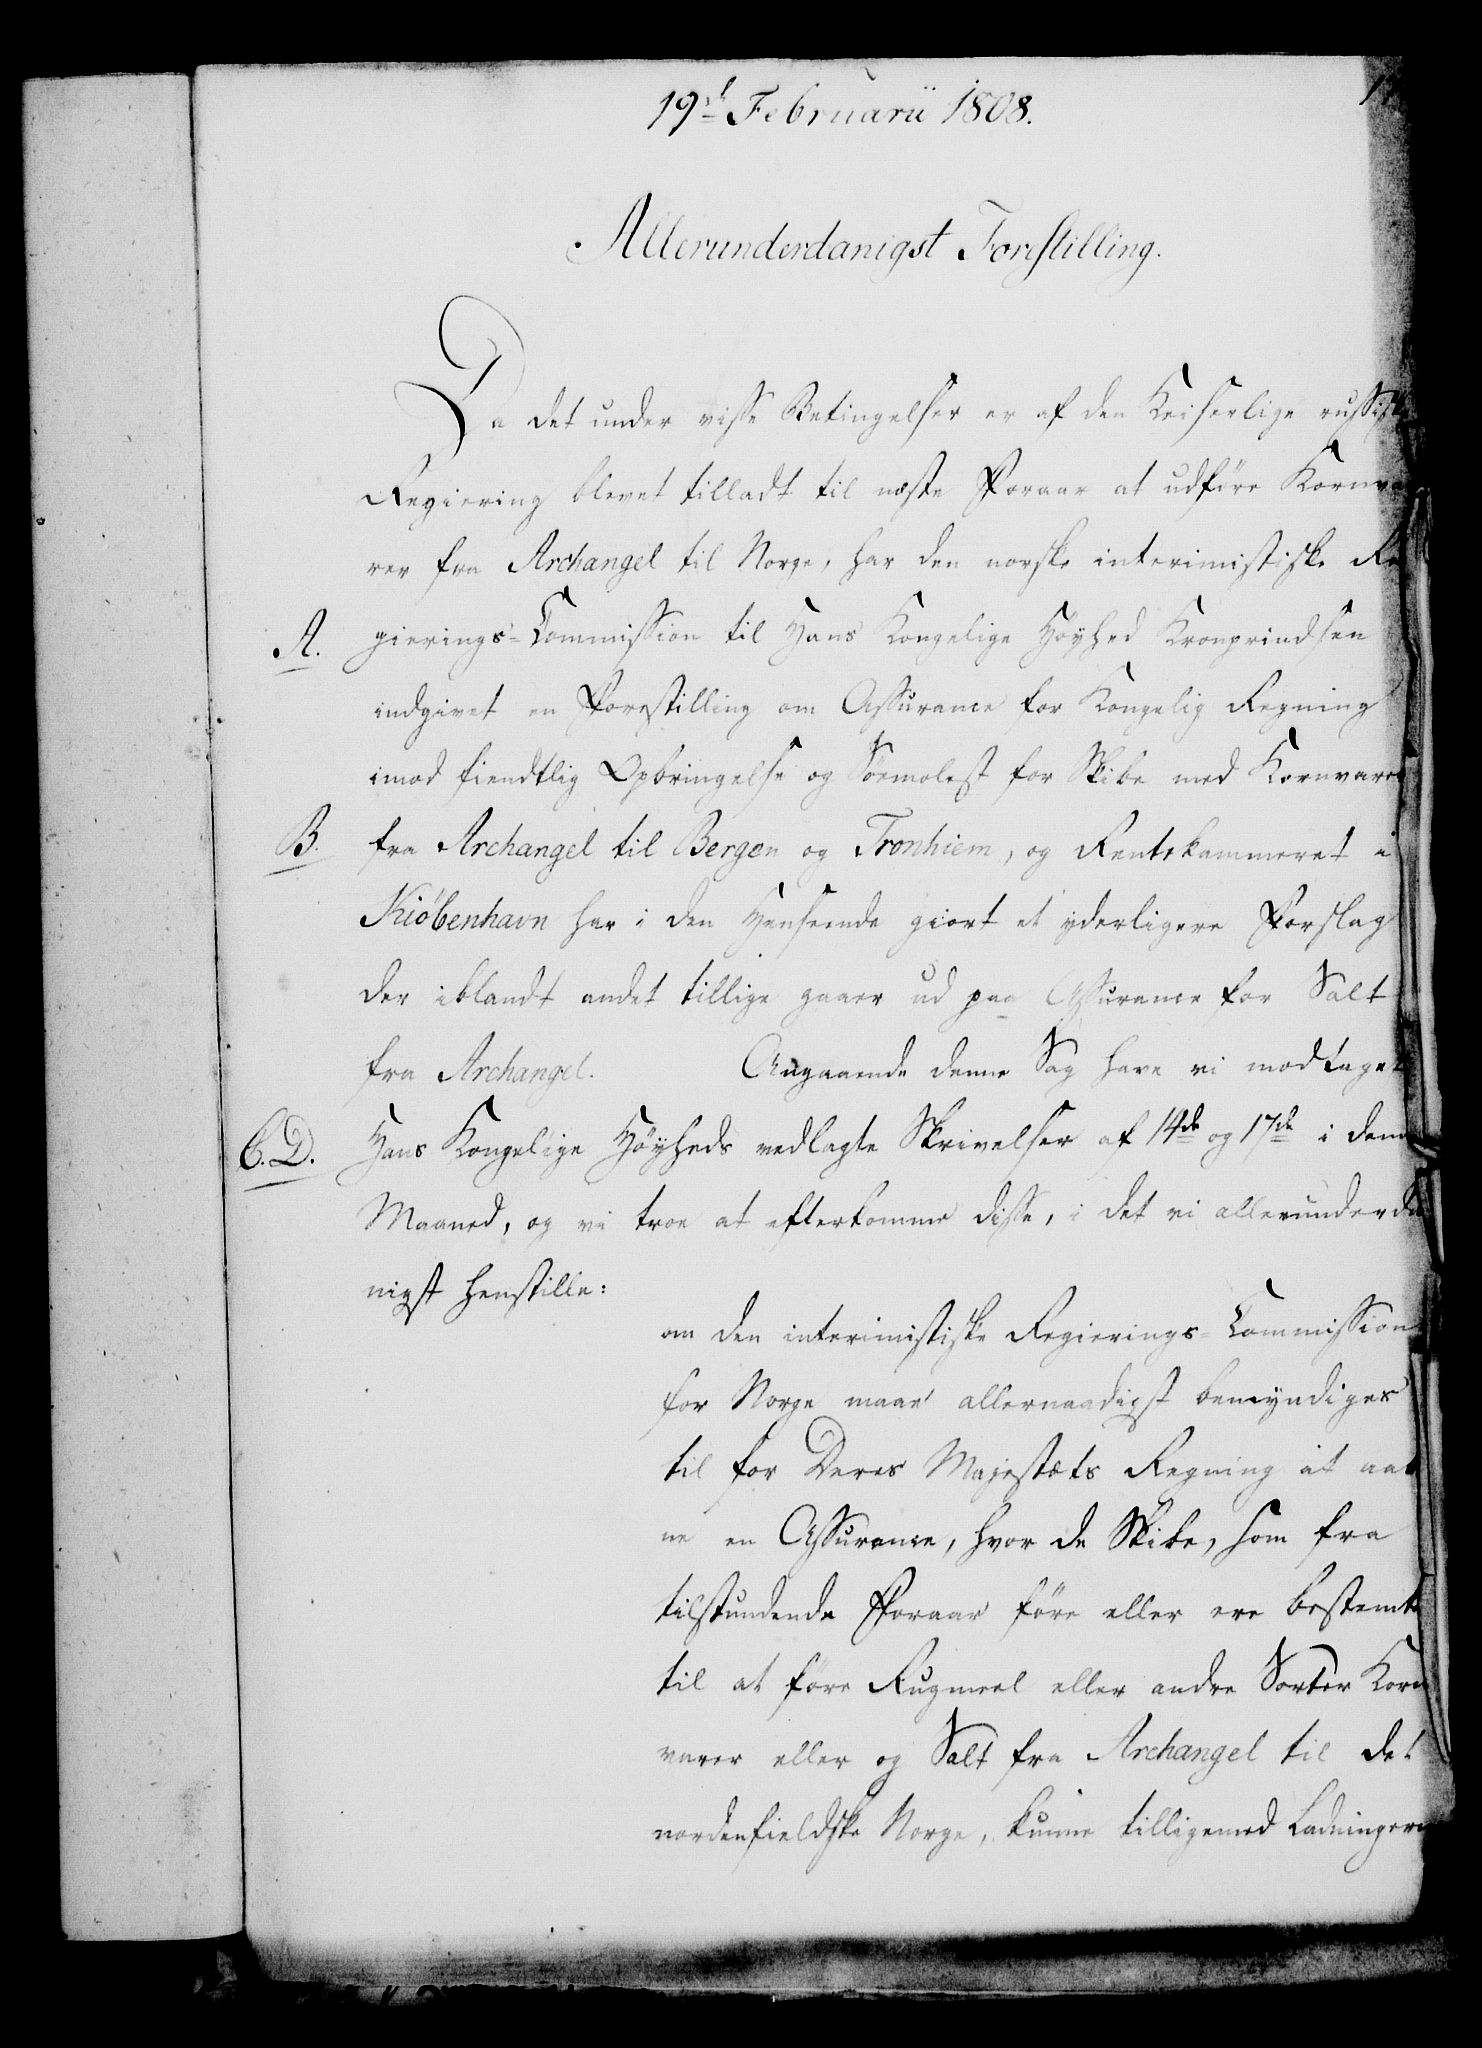 19d Februarii 1808.
Allerunderdanigst Forestilling.
Da det under visse Betingelser er af den Keiserlige russiske
Regiering blevet tilladt til næste Foraar at udføre Kornva-
rer fra Archangel til Norge, har den norske interimistiske Re-
A. gierings-Commission til Hans Kongelige Høyhed Kronprindsen
indgivet en Forestilling om Assurance for Kongelig Regning
imod fiendtlig Opbringelse og Søemolest for Skibe med Kornvarer
B. fra Archangel til Bergen og Tronhiem, og Rentekammeret i
Kiøbenhavn har i den Henseende giort et yderligere Forslag
der iblandt andet tillige gaaer ud paa Assurance for Salt
fra Archangel. Angaaende denne Sag have vi modtaget
C. D. Hans Kongelige Høyheds vedlagte Skrivelser af 14de og 17de i denne
Maaned, og vi troe at efterkomme disse, i det vi allerunderda-
nigst henstille:
om den interimistiske Regierings-Commission
for Norge maae allernaadigst bemyndiges
til for Deres Majestæts Regning at aab-
ne en Assurance, hvor de Skibe, som fra
tilstundende Foraar føre eller ere bestemte
til at føre Rugmeel eller andre Sorter Korn-
varer eller og Salt fra Archangel til det
nordenfieldske Norge, kunne tilligemed Ladningerne